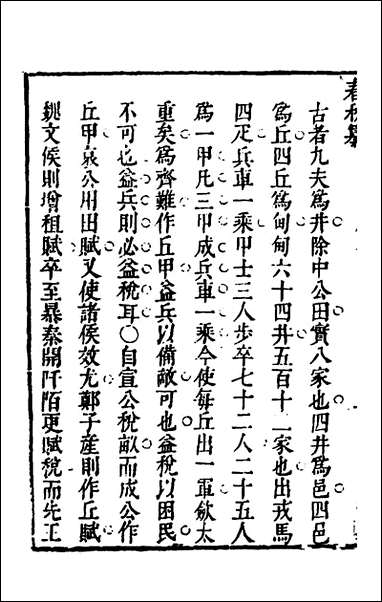 古者九夫為井除中公田實八家也四井為邑四邑
為丘四丘為甸甸六十四井五百十二家也出戎馬
四疋兵車一乘甲士三人步卒七十二人二十五人
為一甲凡三甲成兵車一乘今使每丘出一軍斂太
重矣為齊難作丘甲益兵以備敵可也益稅以困民
不可也益兵則必益稅耳○自宣公稅畝而成公作
丘甲哀公用田賦又使諸侯效尤鄭子產則作丘賦
魏文侯則增租賦卒至暴秦開阡陌更賦稅而先王